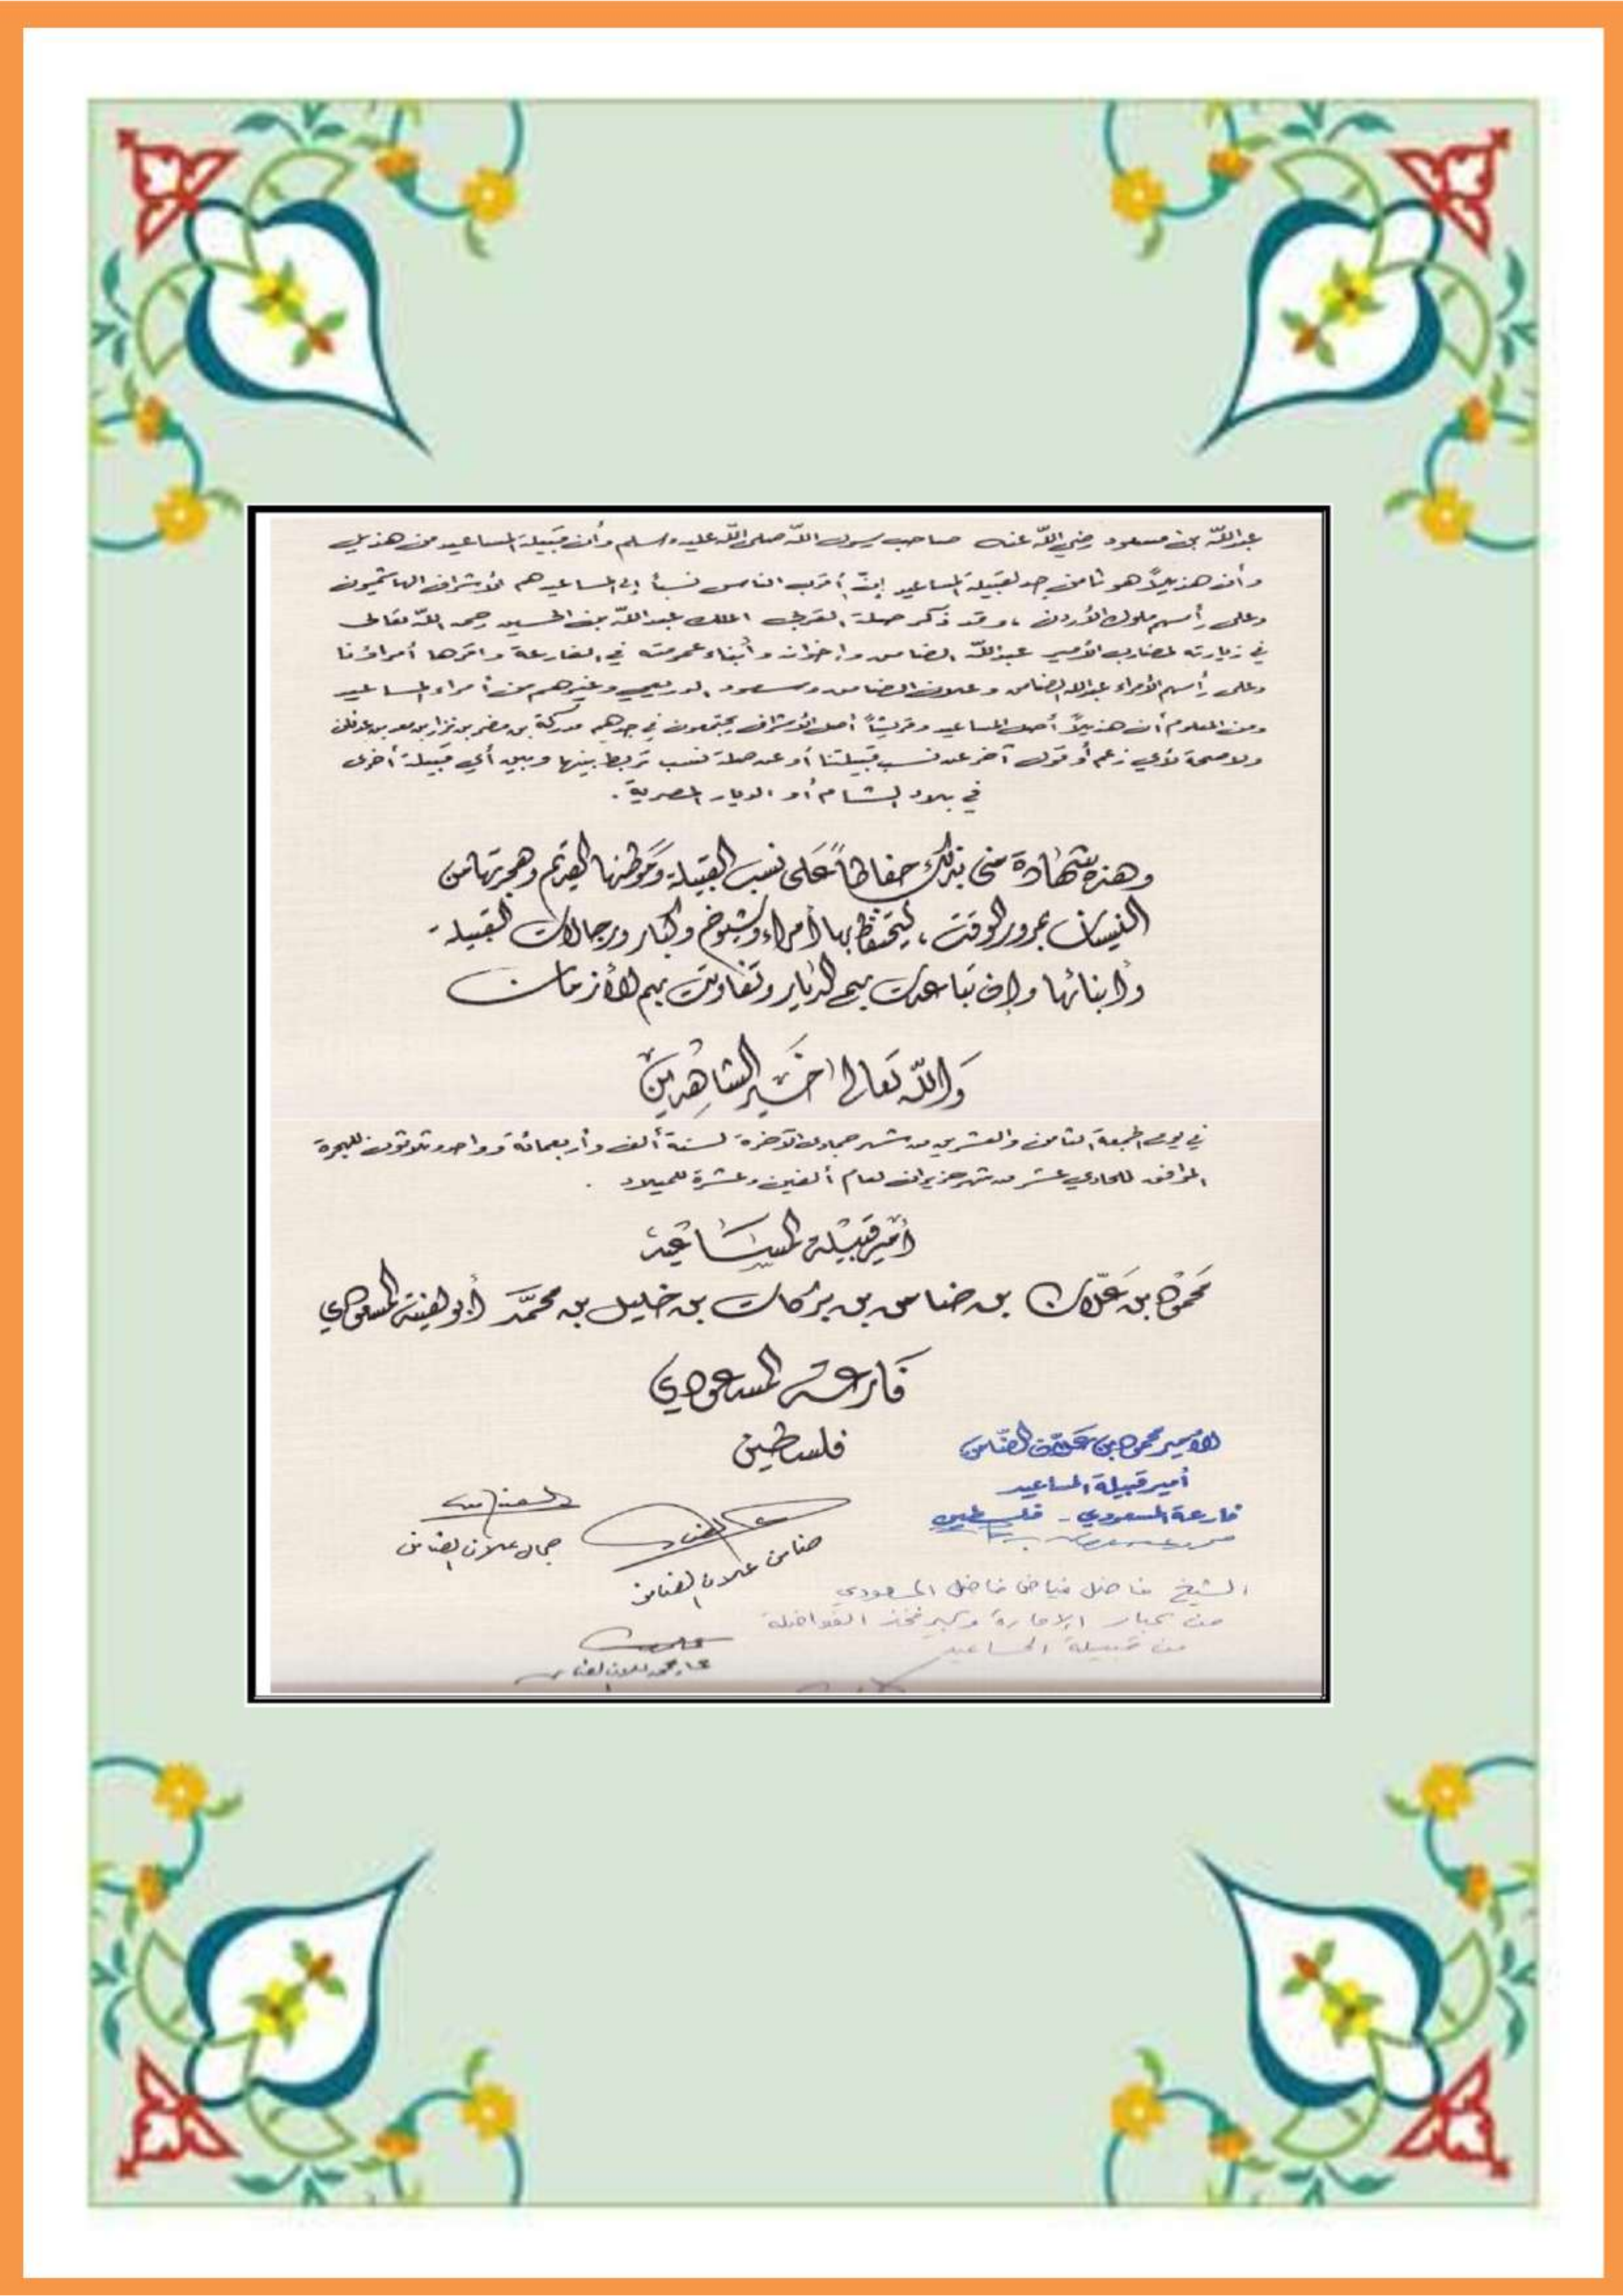 عبدالله بن مسعود رضي الله عنه صاحب رسول الله صلى الله عليه وسلم وأن قبيلة المساعيد من هذيل
وأن هذيلاً هو ثامن جد لقبيلة المساعيد إن أقرب الناس نسباً إلى المساعيد هم الأشراف الهاشميون
وعلى رأسهم ملوك الأردن ، وقد ذكر صلة القربى الملك عبدالله بن الحسين رحمه الله تعالى
في زيارته لمضارب الأمير عبدالله الضامن وإخوانه وأبناء عمومته في الفارعة وأقرها أمراؤنا
وعلى رأسهم الأمراء عبدالله الضامن وعلان الضامن وسعود وغيرهم من أمراء المساعيد
ومن المعلوم أن هذيلاً أصل المساعيد وقريشاً أصل الأشراف يجتمعون في جدهم مدركة بن مضر بن نزار بن معد بن عدنان
ولا صحة لأي زعم أو قول آخر عن نسب قبيلتنا أو عن صلة نسب تربط بينها وبين أي قبيلة أخرى
في بلاد الشام أو الديار المصرية .
وهذه شهادة مني بذلك حفاظاً على نسب القبيلة وموطنها القديم وهجرتها من
النسيان بمرور الوقت ، ليحتفظ بها أمراء وشيوخ وكبار ورجالات القبيلة -
وأبنائها وإن تباعدت بهم الديار وتفاوتت بهم الأزمان
والله تعالى خير الشاهدين
في يوم الجمعة الثامن والعشرين من شهر جمادى الآخرة لسنة ألف وأربعمائة وواحد وثلاثون للهجرة
الموافق للحادي عشر من شهر حزيران لعام ألفين وعشرة للميلاد .
أمير قبيلة المساعيد
محمود بن علان بن ضامن بن بركات بن خليل بن محمد المسعودي
فارعة المسعودي
فلسطين
الأمير محمود بن علان الضامن
أمير قبيلة المساعيد
فارعة المسعودي - فلسطين
جمال علان الضامن
ضامن علان الضامن
الشيخ فاضل فياض فاضل المسعودي
من كبار الإمارة وكبير فخذ الفواضلة
من قبيلة المساعيد
محمد علان الضامن